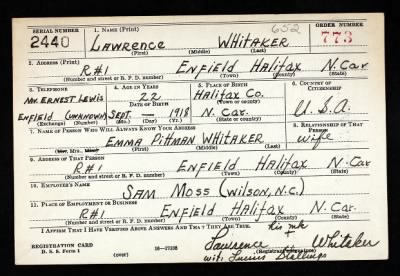 SERIAL NUMBER 1. NAME (Print) 652 ORDER NUMBER
2440 LAWRENCE WHITAKER 773
(First) (Middle) (Last)
2. ADDRESS (Print)
R#1 ENFIELD HALIFAX N.CAR.
(Number and street or R. F. D. number) (Town) (County) (State)
3. TELEPHONE 4. AGE IN YEARS 5. PLACE OF BIRTH 6. COUNTRY OF CITIZENSHIP
MR. ERNEST LEWIS 22 HALIFAX Co.
DATE OF BIRTH (Town or county)
ENFIELD (UNKNOWN) SEPT. — 1918 N. CAR. U.S.A.
(Exchange) (Number) (Mo.) (Day) (Yr.) (State or country)
7. NAME OF PERSON WHO WILL ALWAYS KNOW YOUR ADDRESS 8. RELATIONSHIP OF THAT PERSON
EMMA PITTMAN WHITAKER wife
(Mr., Mrs., Miss) (First) (Middle) (Last)
9. ADDRESS OF THAT PERSON
R#1 ENFIELD HALIFAX N.CAR.
(Number and street or R. F. D. number) (Town) (County) (State)
10. EMPLOYER'S NAME
SAM MOSS (WILSON, N.C.)
11. PLACE OF EMPLOYMENT OR BUSINESS
R#1 ENFIELD HALIFAX N. CAR.
(Number and street or R. F. D. number) (Town) (County) (State)
I AFFIRM THAT I HAVE VERIFIED ABOVE ANSWERS AND THAT THEY ARE TRUE.
his mk
REGISTRATION CARD Lawrence x Whitaker
D. S. S. Form 1 16—17105 wit: Lucius Stallings